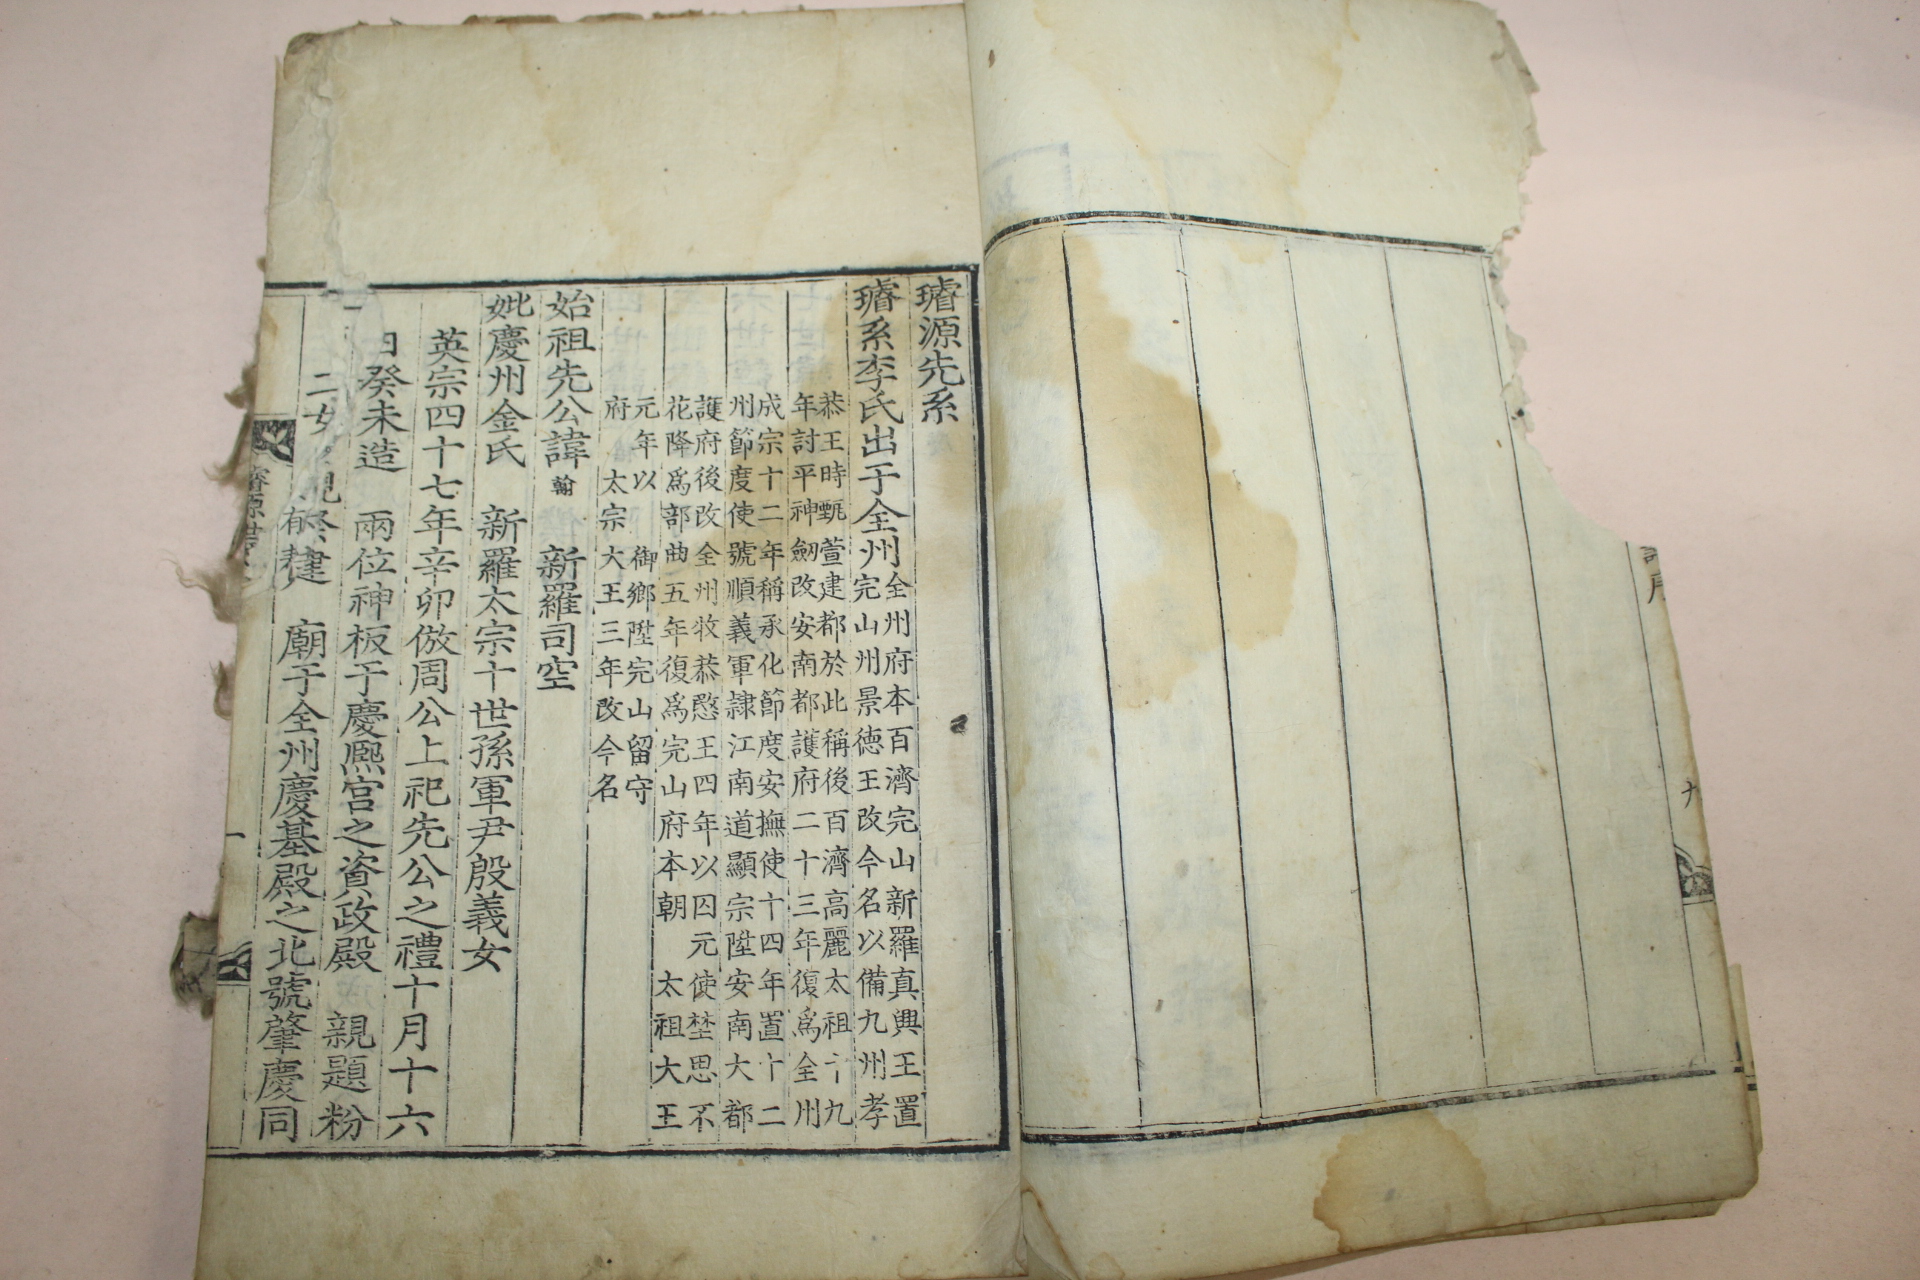 璿源先系
璿系李氏出于全州
全州府本百濟完山新羅真興王置
完山州景德王改今名以備九州孝
恭王時甄萱建都於此稱後百濟高麗太祖十九
年討平神劒改安南都護府二十三年復爲全州
成宗十二年稱承化節度安撫使十四年置十二
州節度使號順義軍隷江南道顯宗陞安南大都
護府後改全州牧恭愍王四年以囚元使埜思不
花降爲部曲五年復爲完山府本朝 太祖大王
元年以 御鄉陞完山留守
府 太宗大王三年改今名
始祖先公諱翰 新羅司空
妣慶州金氏 新羅太宗十世孫軍尹殷義女
英宗四十七年辛卯倣周公上祀先公之禮十月十六
日癸未造 兩位神板于慶熙宮之資政殿 親題粉
建 廟于全州慶基殿之北號肇慶同
璿源
一
九